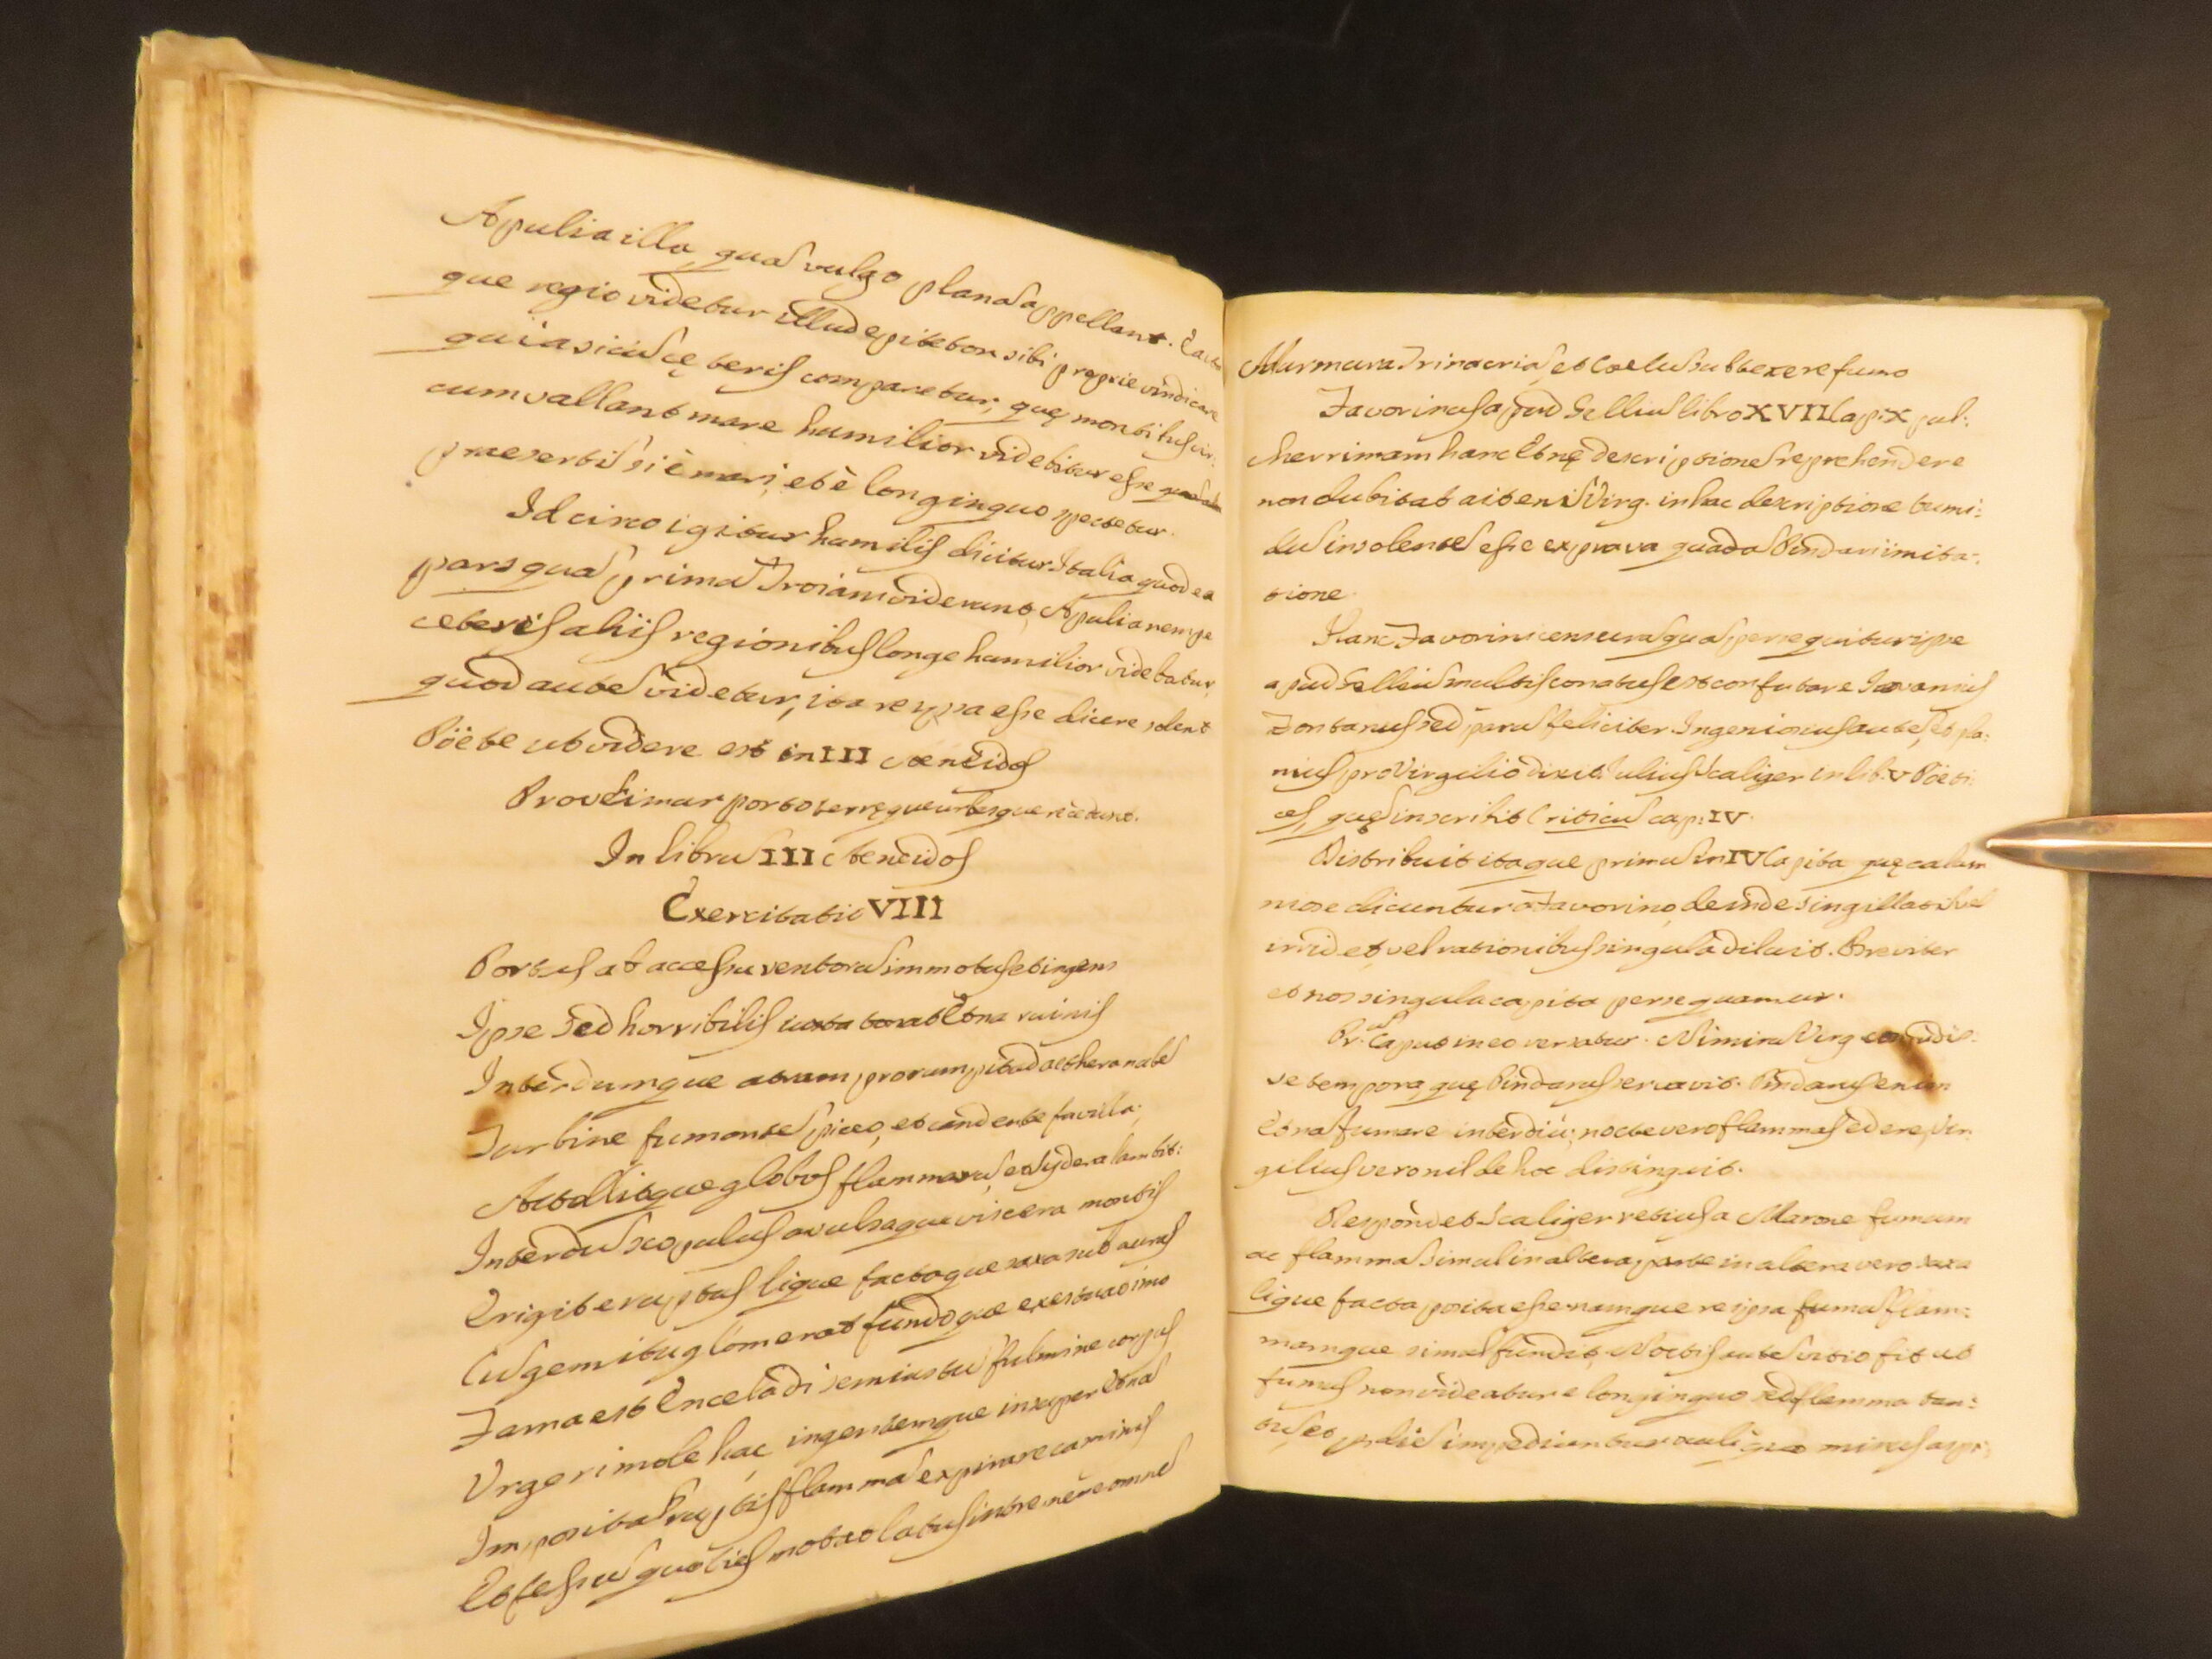 Apulia illa, quã vulgo planã appellant. Ea
que regio videtur illud epiteton sibi proprie vindicare
quia siciliȩ teris comparetur, quȩ montibus cir:
cumvallant mare humilior videbitur esse
praesertĩ si è mari, et è longinquo spectetur.
Idcirco igitur humilis dicitur Italia quod ea
pars quã primã Troiani viderunt, Apulia nempe
ceteris aliis regionibus longe humilior videbatur,
quod autẽ videtur, ita re ipsa esse dicere solent
Pöete ut videre est in III Aeneidos
Provehimur portu terrȩque urbesque recedunt.
In librũ III Aeneidos
Exercitatio VIII
Portus ab accessu ventorũ immotus et ingens
Ipse sed horribilis iuxta tonat Etna ruinis
Interdumque atram prorumpit ad aethera nubẽ
Turbine fumantẽ piceo, et candente favilla;
Attollitque globos flammarũ, et sydera lambit:
Interdũ scopulos avulsaque viscera montis
Erigit eruptas liquefactaque saxa sub auras
Cũ gemitu glomerat fundoque exestuat imo
Fama est Enceladi semiustũ fulmine corpus
Urgeri mole hac, ingentemque insuper Etnã
Impositã ruptis flammã expirare caminis
Et fessũ quoties motat latus intremere omnẽ
Murmura Trinacriã, et Caelũ subtexere fumo
Favorinus apud Gelliũ libro XVII Cap: X pul:
cherrimam hanc Etnȩ descriptionẽ reprehendere
non dubitat ait enĩ Virg. in hac descriptione tumi:
dũ insolentẽ esse ex prava quadã Pindari imita:
tione.
Hanc Favorini censurã quã persequitur ipse
apud Gelliũ multis conatus est confutare Iovanius
Pontanus sed parũ feliciter. Ingeniosius autẽ, et ple:
nius pro Virgilio dixit Iulius Scaliger in lib. V Pöeti:
ces, quȩ inscribit Criticũ cap: IV.
Distribuit itaque primũ in IV Capita quȩ calum
niose dicuntur a Favorino, deinde singillatĩ vel
irridet, vel rationibus singula diluit. Breviter
et nos singula capita persequamur.
Pr: Caput in eo versatur. Nimirũ Virg
se tempora, quȩ Pindarus servavit. Pindarus enim
Etnã fumare interdiu; nocte vero flammas edere, Vir:
gilius vero nil de hoc distinguit.
Respondet Scaliger rectius a Marone fumum
ac flammã simul in altera parte in altera vero saxa
liquefacta posita esse namque re ipsa fumũ flam:
mamque simul fundit, Noctis autẽ vitio fit ut
fumus non videatur e longinquo sed flamma tan: